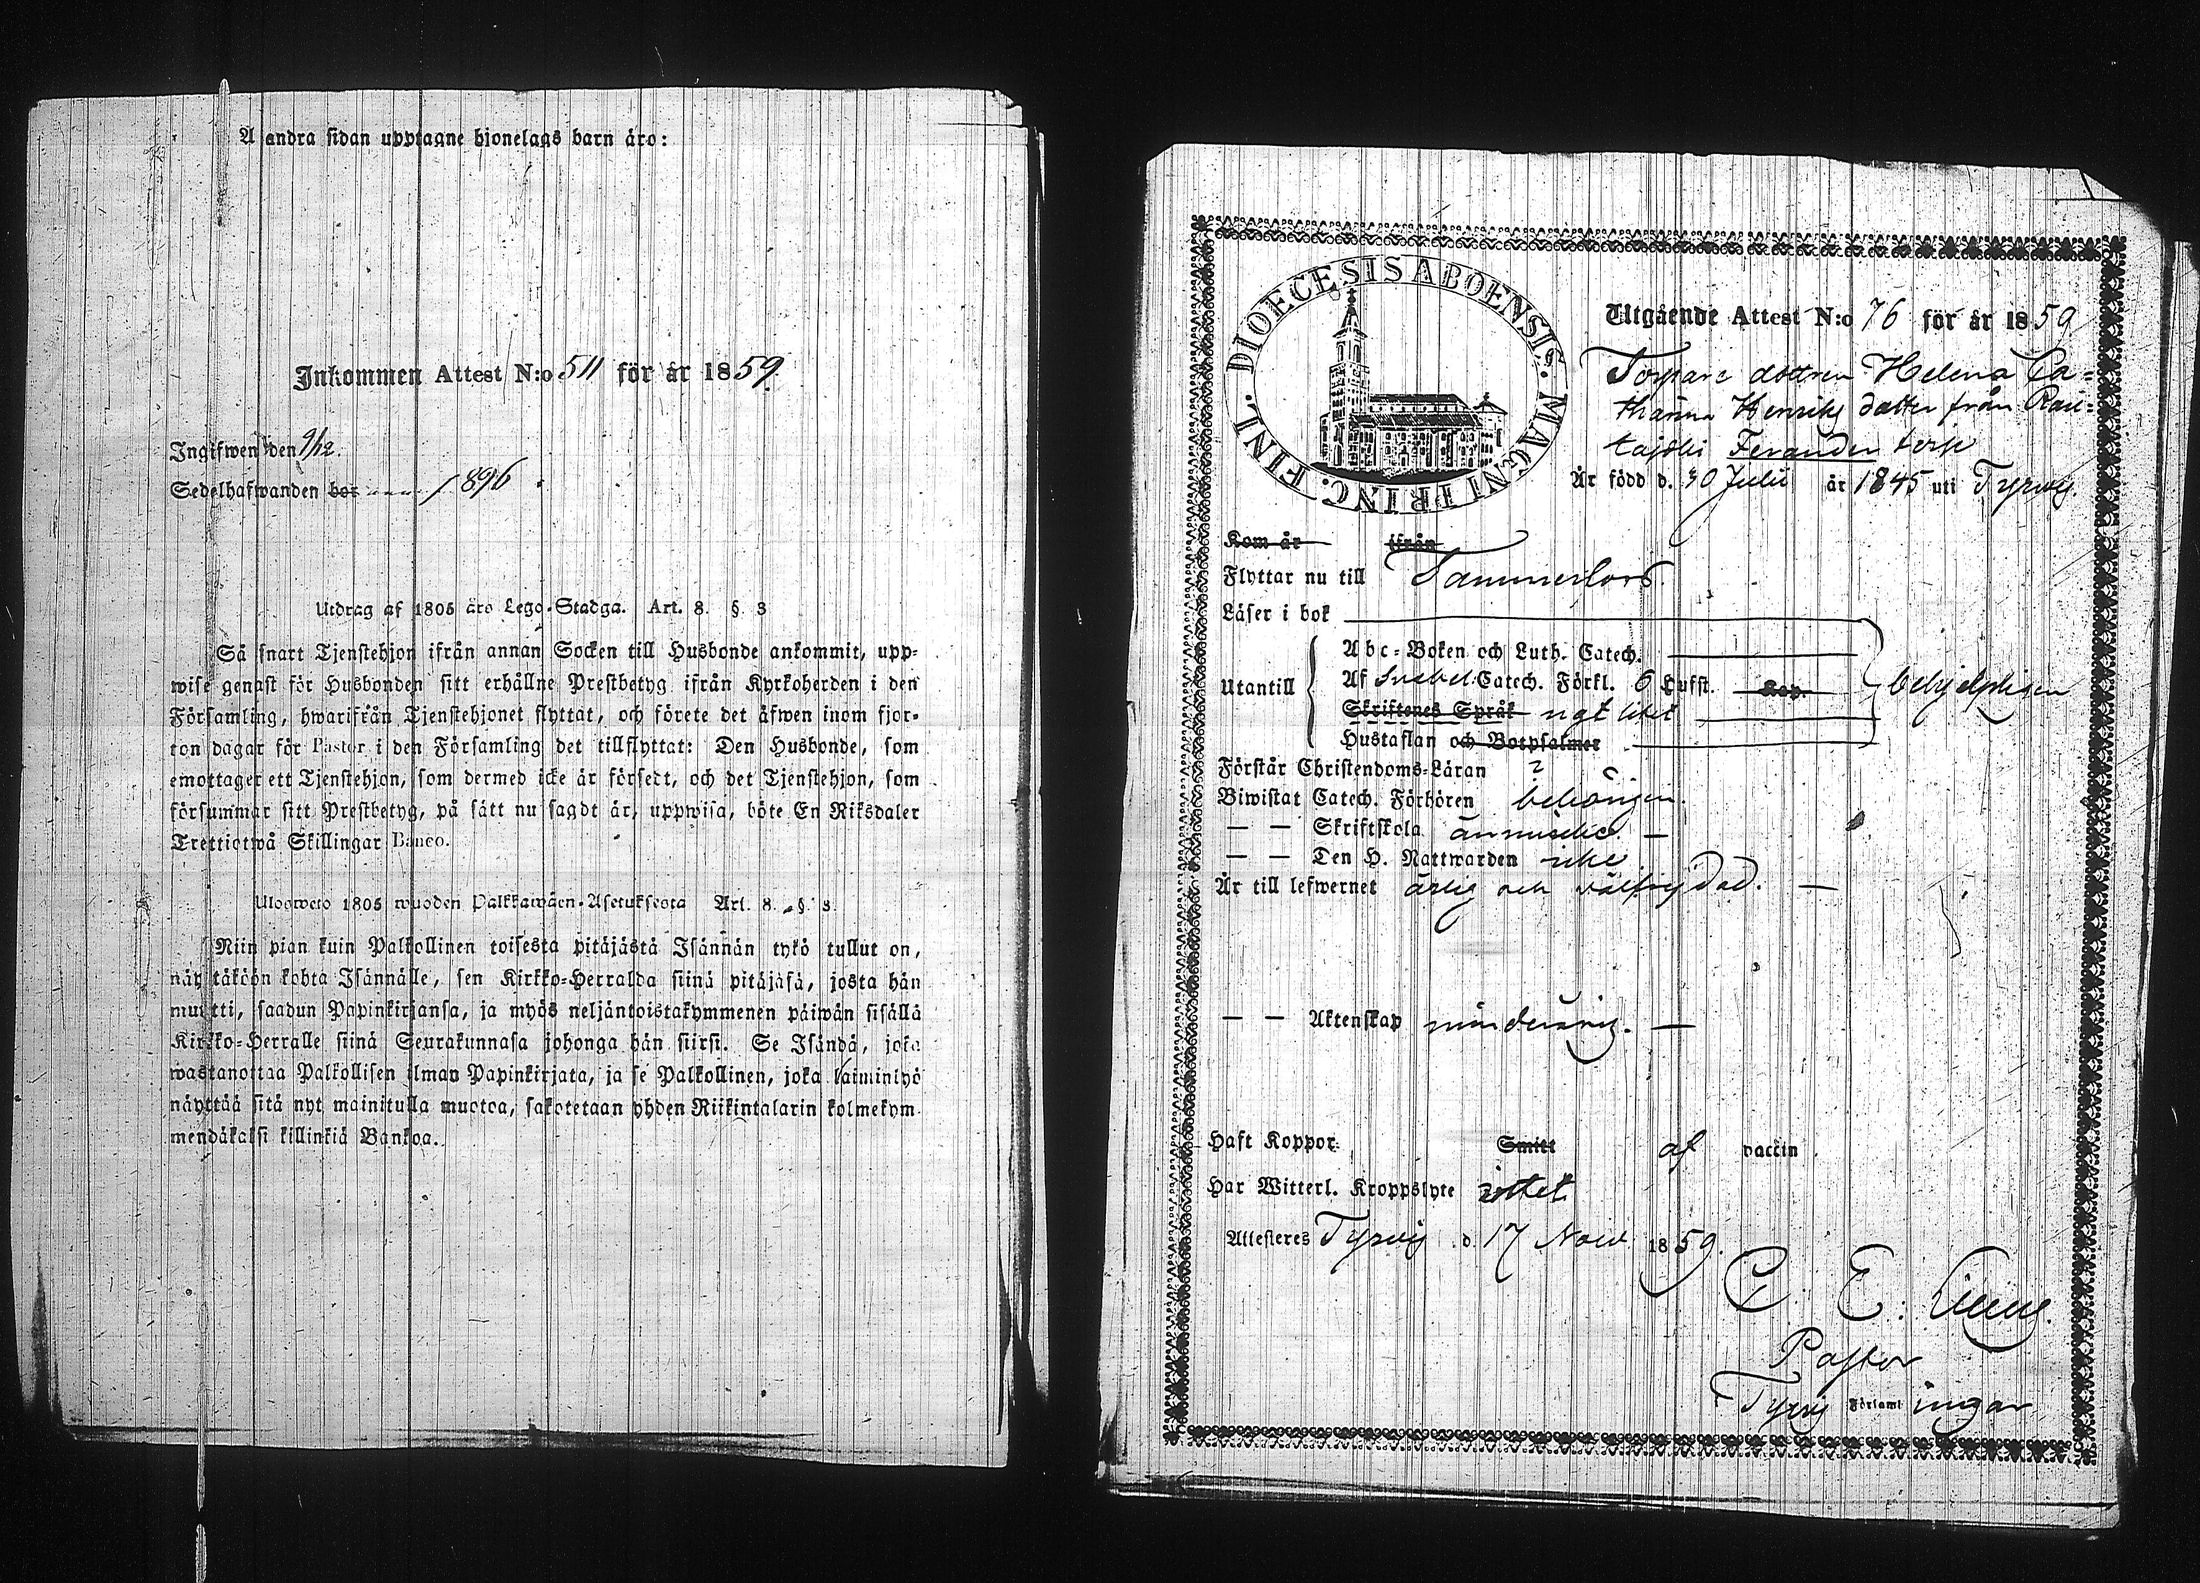 A andra sidan upptagne hjonelags barn äro:
Inkommen Attest N:o 511 för år 1859.
Ingifwen den 9/12.
Sedelhafwanden bor 1896
Utdrag af 1805 års Lego-Stadga. Art. 8. §. 3
Så snart Tjenstehjon ifrån annan Socken till Husbonde ankommit, upp-
wise genast för Husbonden sitt erhållne Prestbetyg ifrån Kyrkoherden i den
Församling, hwarifrån Tjenstehjonet flyttat, och förete det äfwen inom fjor-
ton dagar för Pastor i den Församling det tillflyttat: Den Husbonde, som
emottager ett Tjenstehjon, som dermed icke är försedt, och det Tjenstehjon, som
försummar sitt Prestbetyg, på sätt nu sagdt är, uppwisa, böte En Riksdaler
Trettiotwå Skillingar Banco.
Uloswеto 1805 wuoden Palkkawäen-Asetuksesta Art. 8. §. 3.
Niin pian kuin Palkollinen toisesta pitäjästä Isännän tykö tullut on,
näyttäköön kohta Isännälle, sen Kirkko-Herralda siinä pitäjäsä, josta hän
muutti, saadun Papinkirjansa, ja myös neljäntoistakymmenen päiwän sisällä
Kirkko-Herralle siinä Seurakunnasa johonga hän siirsi. Se Isändä, joka
wastanottaa Palkollisen ilman Papinkirjata, ja se Palkollinen, joka laiminlyö
näyttää sitä nyt mainitulla muotoa, sakotetaan yhden Riikintalarin kolmekym-
mendäkaksi killinkiä Bankoa.
DIOECESIS ABOENSIS. MAGNI PRINC. FINL.
Utgående Attest N:o 76 för år 1859
Torpare dottren Helena Ca-
tharina Henriks dotter från Rau-
tajoki Feranden torp
Är född d. 30 Julii år 1845 uti Tyrvis.
Kom år ifrån
Flyttar nu till Tammerfors
Läser i bok
Abc-Boken och Luth. Catech.
Utantill Af Svebel. Catech. Förkl. 6 Hufst. Kap. behjelpligen
Skriftenes Språk
Hustaflan och Botpsalmer
Förstår Christendoms-Läran
Biwistat Catech. Förhören behörigen.
— — Skriftskola ännu icke —
— — Den H. Nattwarden icke
Är till lefwernet ärlig och välfrejdad. —
— — Äktenskap minderårig. —
Haft Koppor: Smitt af vaccin
Har Witterl. Kroppslyte intet
Attesteres Tyrvis d. 17 Nov. 1859.
Pastor
Tyrvis Församl ingar